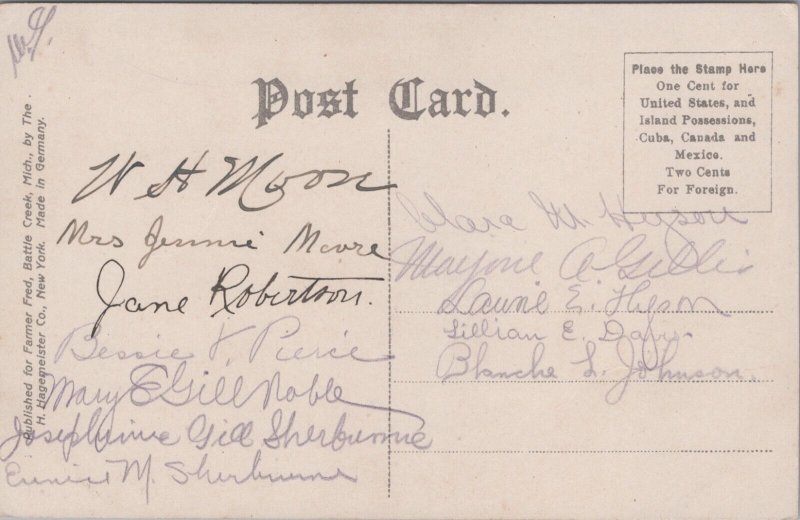 Published for Farmer Fred, Battle Creek, Mich., by The
H. Hagemeister Co., New York. Made in Germany.
Post Card.
Place the Stamp Here
One Cent for
United States, and
Island Possessions,
Cuba, Canada and
Mexico.
Two Cents
For Foreign.
W H Moon
Mrs Jennie Moore
Jane Robertson.
Bessie V. Pierce
Mary E Gill Noble
Josephine Gill Sherburne
Eunice M. Sherburne
Clara M.
Marjorie A Gillis
E. Hyson
Lillian E.
Blanche L. Johnson.